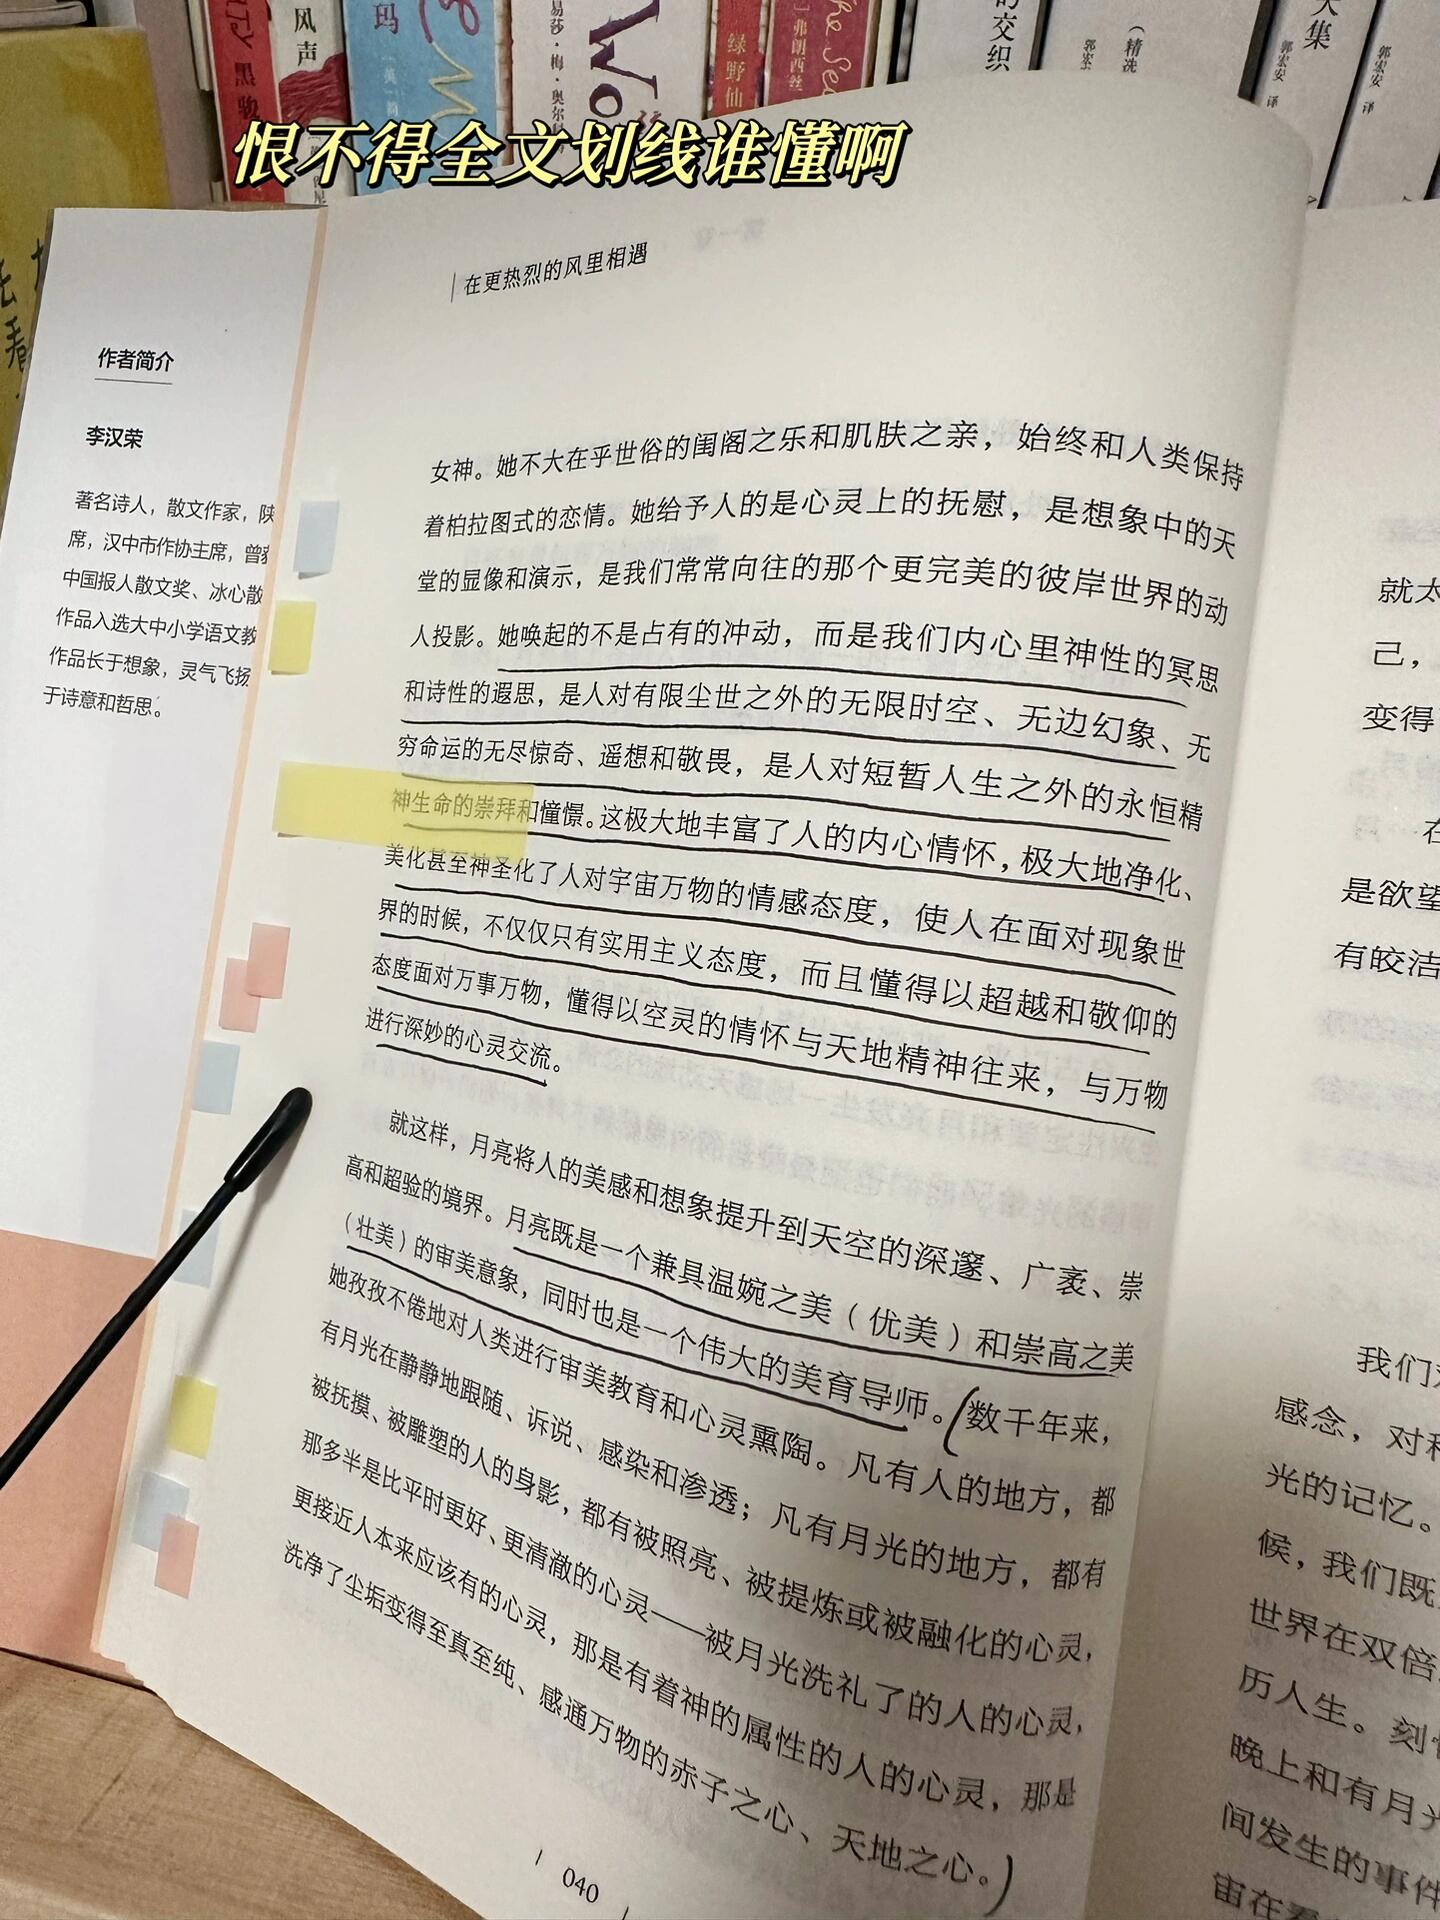 风声
玛
易莎·梅·奥尔
绿野仙
弗朗西丝
的交织
(精选
大集
郭宏安 译
郭宏安 译
恨不得全文划线谁懂啊
在更热烈的风里相遇
作者简介
李汉荣
著名诗人，散文作家，陕
席，汉中市作协主席，曾获
中国报人散文奖、冰心散
作品入选大中小学语文教
作品长于想象，灵气飞扬
于诗意和哲思。
女神。她不大在乎世俗的闺阁之乐和肌肤之亲，始终和人类保持
着柏拉图式的恋情。她给予人的是心灵上的抚慰，是想象中的天
堂的显像和演示，是我们常常向往的那个更完美的彼岸世界的动
人投影。她唤起的不是占有的冲动，而是我们内心里神性的冥思
和诗性的遐思，是人对有限尘世之外的无限时空、无边幻象、无
穷命运的无尽惊奇、遥想和敬畏，是人对短暂人生之外的永恒精
神生命的崇拜和憧憬。这极大地丰富了人的内心情怀，极大地净化、
美化甚至神圣化了人对宇宙万物的情感态度，使人在面对现象世
界的时候，不仅仅只有实用主义态度，而且懂得以超越和敬仰的
态度面对万事万物，懂得以空灵的情怀与天地精神往来，与万物
进行深妙的心灵交流。
就这样，月亮将人的美感和想象提升到天空的深邃、广袤、崇
高和超验的境界。月亮既是一个兼具温婉之美（优美）和崇高之美
（壮美）的审美意象，同时也是一个伟大的美育导师。数千年来，
她孜孜不倦地对人类进行审美教育和心灵熏陶。凡有人的地方，都
有月光在静静地跟随、诉说、感染和渗透；凡有月光的地方，都有
被抚摸、被雕塑的人的身影，都有被照亮、被提炼或被融化的心灵，
那多半是比平时更好、更清澈的心灵——被月光洗礼了的人的心灵，
更接近人本来应该有的心灵，那是有着神的属性的人的心灵，那是
洗净了尘垢变得至真至纯、感通万物的赤子之心、天地之心。
040
就太
己，
变得
在
是欲望
有皎洁
我们对
感念，对和
光的记忆。
候，我们既
世界在双倍
历人生。刻
晚上和有月光
间发生的事件
宙在看